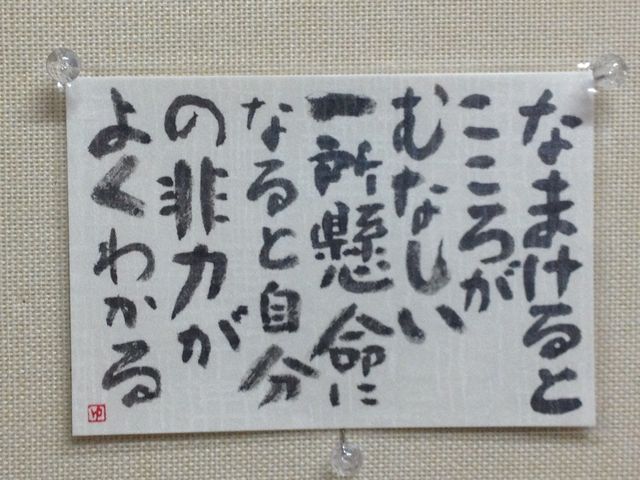 なまけると
こころが
むなしい
一所懸命に
なると自分
の非力が
よくわかる
ゆ